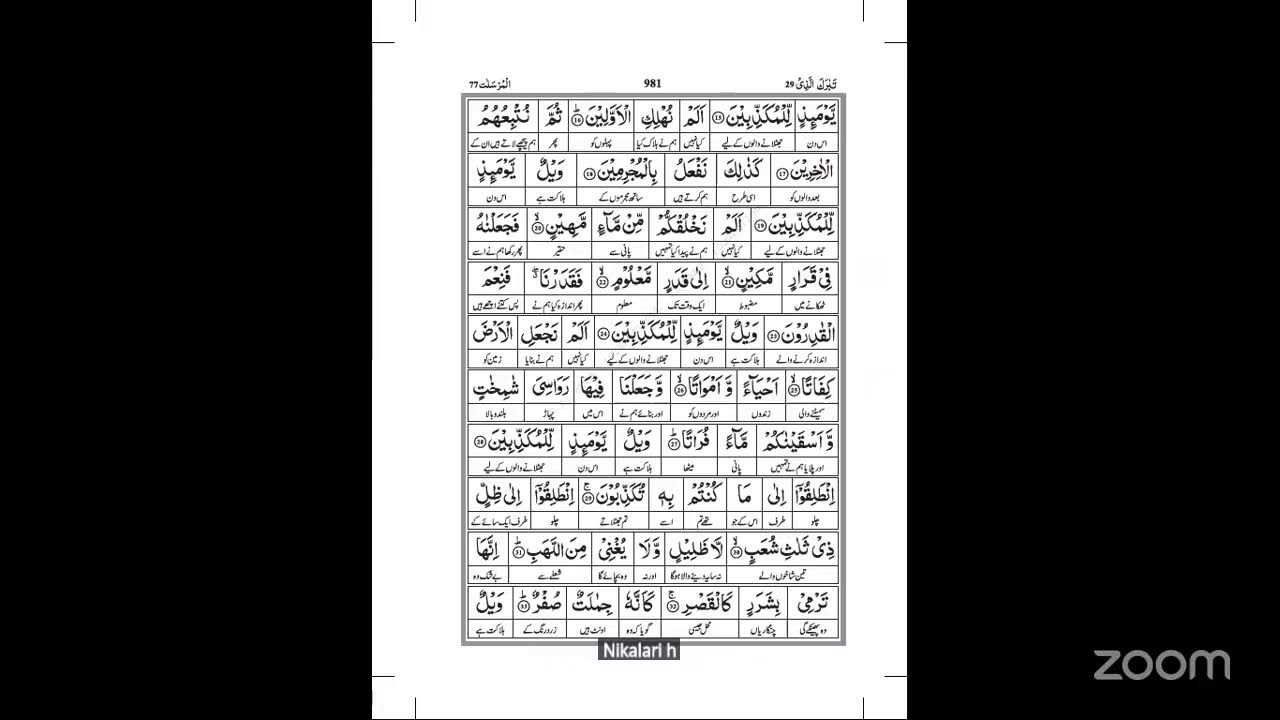 تَبٰرَكَ الَّذِیْ 29
981
اَلْمُرْسَلٰت 77
یَّوْمَىِٕذٍ لِّلْمُكَذِّبِیْنَ ⑮ اَلَمْ نُهْلِكِ الْاَوَّلِیْنَ ⑯ ثُمَّ نُتْبِعُهُمُ
اس دن جھٹلانے والوں کے لیے کیا نہیں ہم نے ہلاک کیا پہلوں کو پھر ہم پیچھے لاتے ہیں ان کے
الْاٰخِرِیْنَ ⑰ كَذٰلِكَ نَفْعَلُ بِالْمُجْرِمِیْنَ ⑱ وَیْلٌ یَّوْمَىِٕذٍ
بعد والوں کو اسی طرح ہم کرتے ہیں ساتھ مجرموں کے ہلاکت ہے اس دن
لِّلْمُكَذِّبِیْنَ ⑲ اَلَمْ نَخْلُقْكُّمْ مِّنْ مَّآءٍ مَّهِیْنٍ ⑳ فَجَعَلْنٰهُ
جھٹلانے والوں کے لیے کیا نہیں ہم نے پیدا کیا تمہیں پانی سے حقیر پھر رکھا ہم نے اسے
فِیْ قَرَارٍ مَّكِیْنٍ ㉑ اِلٰی قَدَرٍ مَّعْلُوْمٍ ㉒ فَقَدَرْنَا فَنِعْمَ
ٹھکانے میں مضبوط ایک وقت تک معلوم پھر اندازہ کیا ہم نے پس کتنے اچھے ہیں
الْقٰدِرُوْنَ ㉓ وَیْلٌ یَّوْمَىِٕذٍ لِّلْمُكَذِّبِیْنَ ㉔ اَلَمْ نَجْعَلِ الْاَرْضَ
اندازہ کرنے والے ہلاکت ہے اس دن جھٹلانے والوں کے لیے کیا نہیں ہم نے بنایا زمین کو
كِفَاتًا ㉕ اَحْیَآءً وَّ اَمْوَاتًا ㉖ وَّ جَعَلْنَا فِیْهَا رَوَاسِیَ شٰمِخٰتٍ
سمیٹنے والی زندوں اور مردوں کو اور بنائے ہم نے اس میں پہاڑ بلند و بالا
وَّ اَسْقَیْنٰكُمْ مَّآءً فُرَاتًا ㉗ وَیْلٌ یَّوْمَىِٕذٍ لِّلْمُكَذِّبِیْنَ ㉘
اور پلایا ہم نے تمہیں پانی میٹھا ہلاکت ہے اس دن جھٹلانے والوں کے لیے
اِنْطَلِقُوْۤا اِلٰی مَا كُنْتُمْ بِهٖ تُكَذِّبُوْنَ ㉙ اِنْطَلِقُوْۤا اِلٰی ظِلٍّ
چلو طرف اس کے جو تھے تم اسے تم جھٹلاتے چلو طرف ایک سائے کے
ذِیْ ثَلٰثِ شُعَبٍ ㉚ لَّا ظَلِیْلٍ وَّ لَا یُغْنِیْ مِنَ اللَّهَبِ ㉛ اِنَّهَا
تین شاخوں والے نہ سایہ دینے والا ہوگا اور نہ وہ بچائے گا شعلے سے بے شک وہ
تَرْمِیْ بِشَرَرٍ كَالْقَصْرِ ㉜ كَاَنَّهٗ جِمٰلَتٌ صُفْرٌ ㉝ وَیْلٌ
وہ پھینکے گی چنگاریاں محل جیسی گویا کہ وہ اونٹ ہیں زرد رنگ کے ہلاکت ہے
Nikalari h
zoom